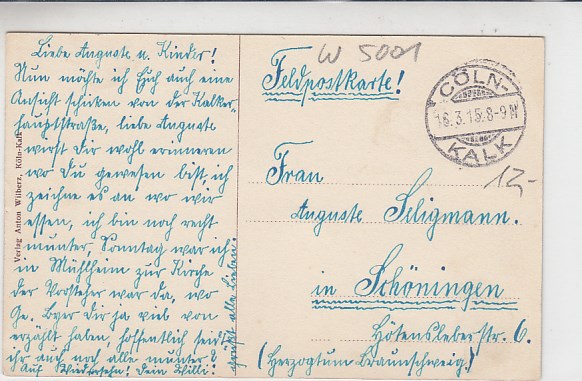 Liebe Auguste u. Kinder!
Nun möchte ich Euch auch eine
Ansicht schicken von der Kalker-
hauptstraße, liebe Auguste
wirst Dir wohl erinneren
wo Du gewesen bist, ich
zeichne es an wo wir
essen, ich bin noch recht
munter, Sonntag war ich
in Mühlheim zur Kirche
der Vorsteher war da, wo
Ge. Dir ja viel von
erzählt haben, hoffentlich seid
ihr auch noch alle munter
Auf Wiedersehn! Dein Willi!
grüßt alle Lieben
Verlag Anton Wilberz, Köln-Kalk
W 5001
Feldpostkarte!
CÖLN-
16.3.15.8-9N
KALK
12,-
Frau
Auguste Seligmann.
in Schöningen
Hötensleberstr. 6.
(Herzogtum Braunschweig.)